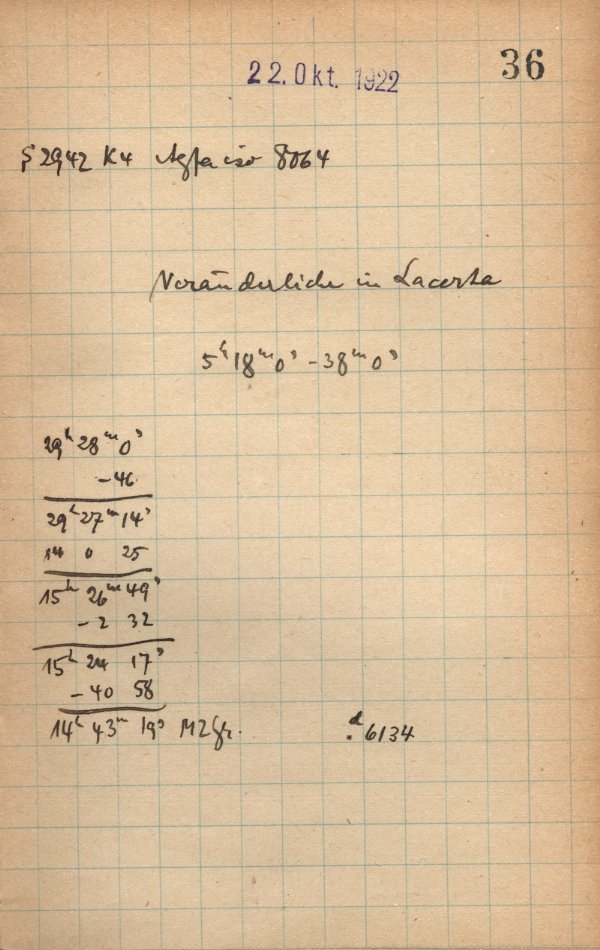 22. Okt. 1922
36
S 2942 K4 Agfa iso 8064
Veränderliche in Lacerta
5ʰ 18ᵐ 0ˢ – 38ᵐ 0ˢ
29ʰ 28ᵐ 0ˢ
– 46
29ʰ 27ᵐ 14ˢ
14 0 25
15ʰ 26ᵐ 49ˢ
– 2 32
15ʰ 24 17ˢ
– 40 58
14ʰ 43ᵐ 19ˢ MZGr.
.ᵈ6134